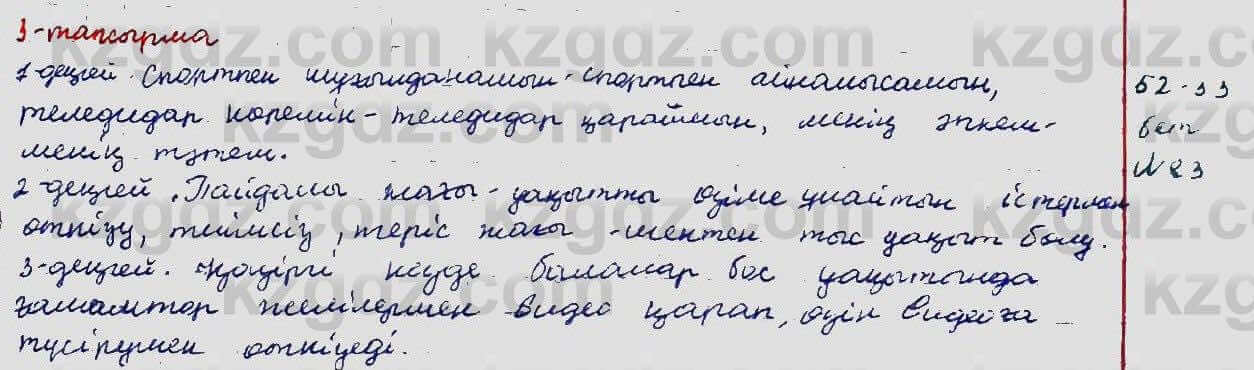 3-тапсырма
1-деңгей. Спортпен шұғылданамын - спортпен айналысамын,
теледидар көремін - теледидар қараймын, менің әпкем -
менің тәтем.
2-деңгей. Пайдалы жағы - уақытты өзіме ұнайтын істермен
өткізу, тиімсіз, теріс жағы - шектен тыс уақыт бөлу.
3-деңгей. Қазіргі кезде балалар бос уақытында
ғаламтор желілермен видео қарап, өзін видеоға
түсірумен өткізеді.
52-53
бет
№3
kzgdz.com kzgdz.com kzgdz.com